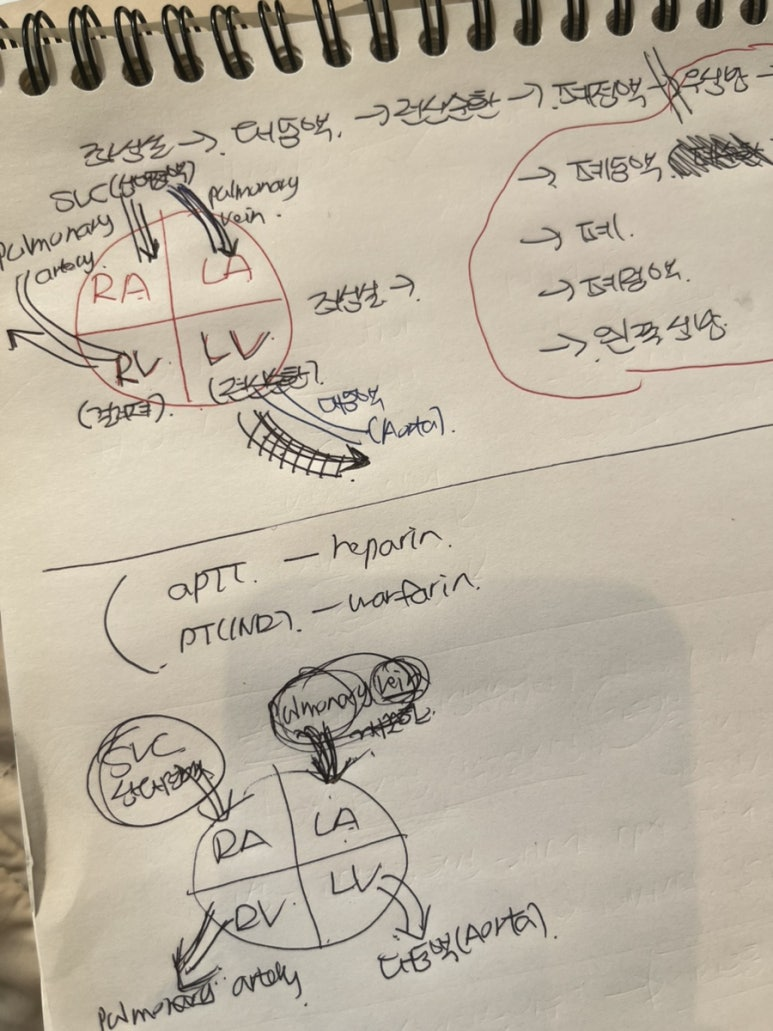 좌심실 → 대동맥 → 전신순환 → 폐정맥 → 우심방 →
→ 폐동맥
→ 폐
→ 폐정맥
→ 왼쪽 심방
SVC
pulmonary vein
pulmonary artery
RA
LA
좌심실 →
RV
LV
(전신순환)
대동맥
(Aorta)
aPTT. - heparin.
PT(INR). - warfarin.
pulmonary vein
SVC
상대정맥
RA
LA
RV
LV
pulmonary artery
대동맥(Aorta).